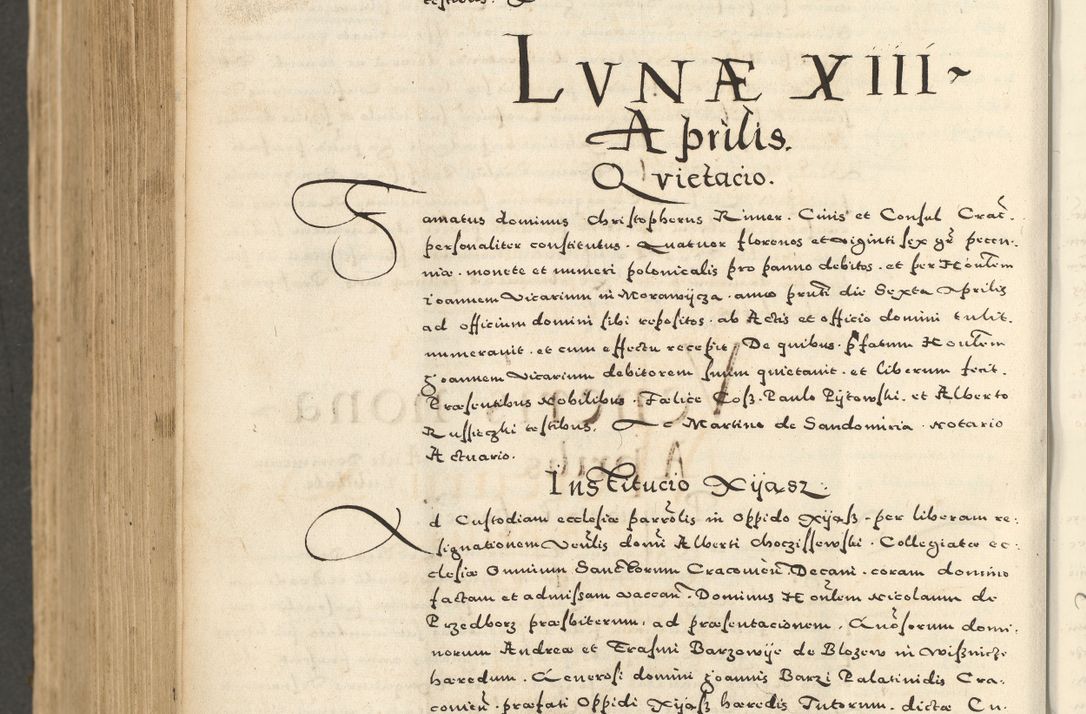 LVNÆ XIII
Aprilis.
Qvietacio.
Famatus dominus Christopherus Rimer. Ciuis et Consul Crac̃.
personaliter constitutus. Quatuor florenos et viginti sex gr̃ pecu-
niæ. monete et numeri polonicalis pro panno debitos. et per Honᷓlem
Ioannem Vicarium in Morawijcza. anno prñti die Sexta Aprilis
ad officium domini sibi repositos. ab Actis et officio domini tulit.
numerauit. et cum effectu recepit. De quibus. pfatum Honᷓlem
Joannem Vicarium debitorem suum quietauit. et liberum fecit.
Præsentibus Nobilibus. Fælice Coß. Paulo Pijtowski. et Alberto
Russieczki testibus. Ac Martino de Sandomiria. Notario
Actuario.
Institucio Xijasz.
Ad Custodiam ecclesiæ parrõlis in Oppido Xijaß. per liberam re-
signationem Venᷓlis domi Alberti Choczissewski. Collegiatæ ec-
clesiæ Omnium Sanctorum Cracouieñ. Decani. coram domino
factam et admissam vaccañ. Dominus Honᷓlem Nicolaum de
Przedborz præsbiterum. ad præsentacionem. Gnõsorum domi-
norum Andreæ et Erasmi Barzowije de Blozew in Wißnicze
hæredum. Generosi domini Joannis Barzi Palatinidis Cra-
couieñ. præfati Oppidi Xijaß hæredis Tutorum. dictæ Cu-